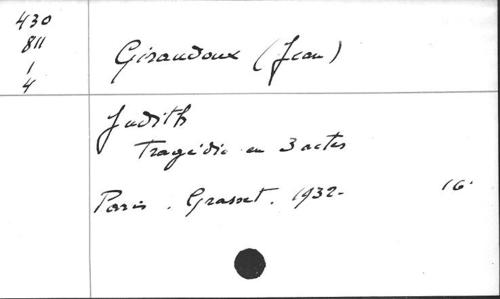 430
811
1
4
Giraudoux (Jean)
Judith
Tragédie en 3 actes
Paris. Grasset. 1932-
16°